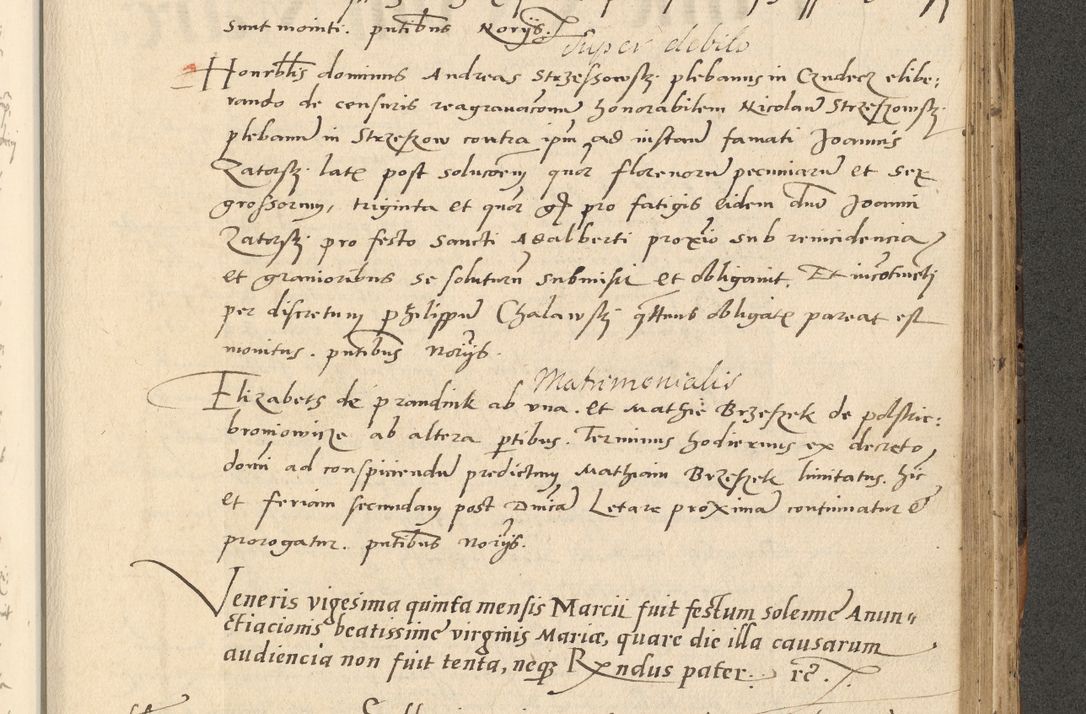 sunt moniti. pntibus Norijs.
Super debito
Honrbilis dominus Andreas Strzessowskj plebanus in Czudecz elibe:
rando de censuris reagravacione honorabilem Nicolau Strzeszowskj
plebanu in Strzeszow contra ipm ad instan famati Joannis
Zatorskj late post solucoem quor florenoru pecuniaru et sex
grossorum, triginta et quor gr pro fatigis eidem dno Joanni
Zatorskj pro festo sancti Adalberti proxio sub reincidencia
et gravioribus se soluturu submisit et obligavit. Et
per discretum philippu Chalawskj obligate pareat est
monitus. pntibus Norijs.
Matrimonialis
Elizabets de prandnik ab una. et Mathie Brzeszek de polskie:
broniowicze ab altera ptibus. Terminus hodiernus ex decreto
domi ad conspiciendu predictum Mathiam Brzeszek limitatus. hic
et feriam secundam post Dnica Letare proxima continuatur et
prorogatur. pntibus Norijs.
Veneris vigesima quinta mensis Marcii fuit festum solenne Anun-
ctiacionis beatissime virginis Mariæ, quare die illa causarum
audiencia non fuit tenta, neqz Rxndus pater. rc.